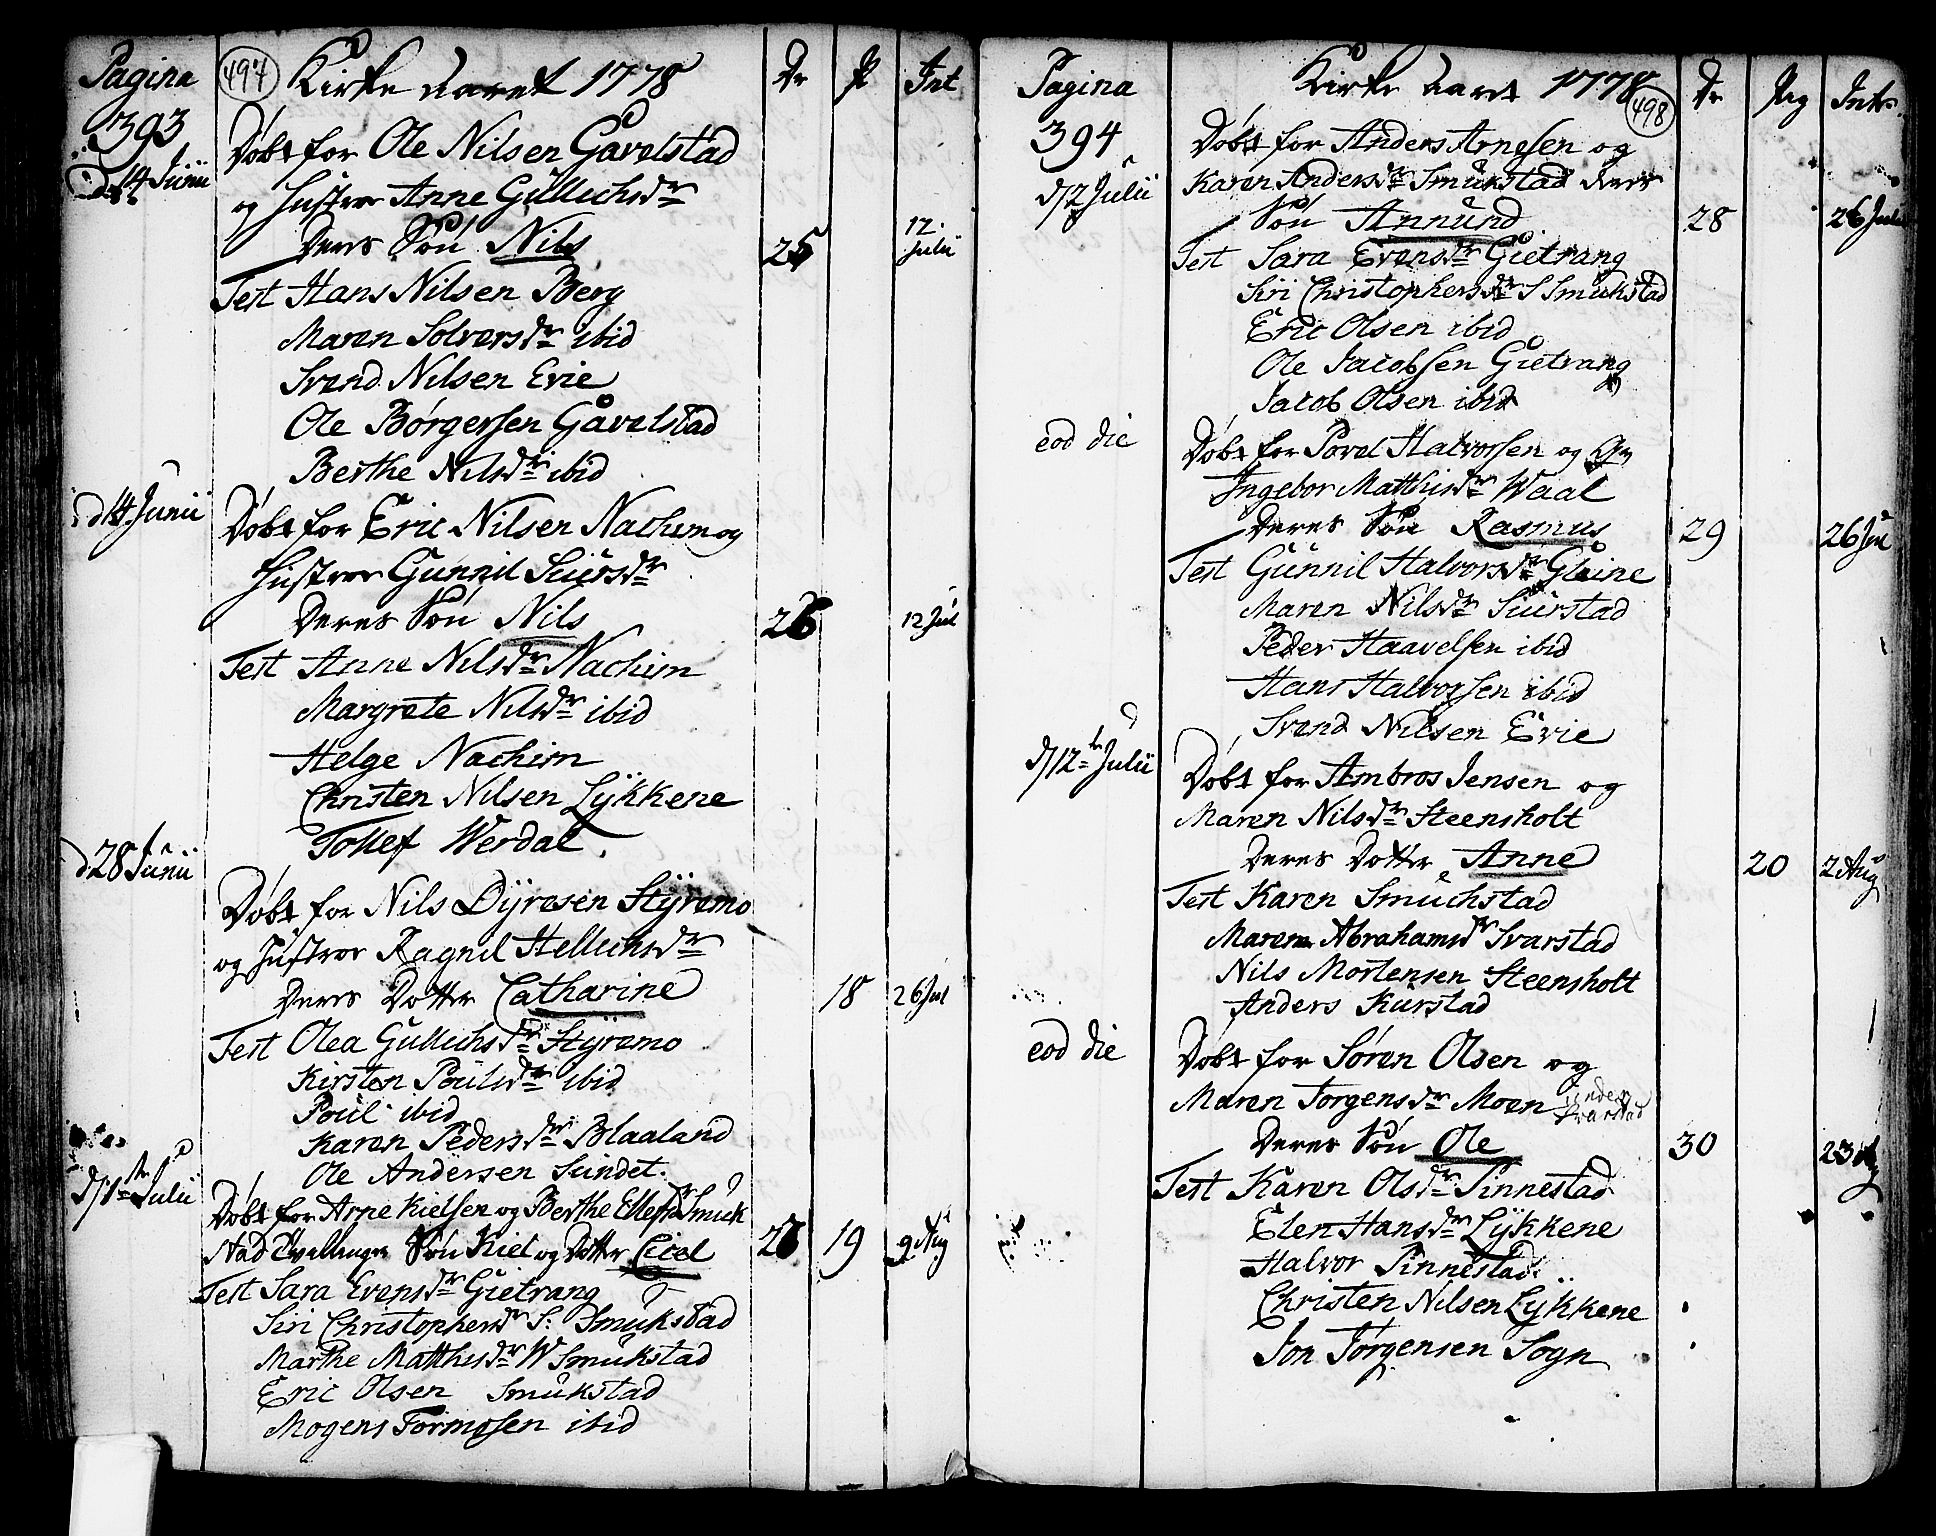 Pagina 497 Kirke Aaret 1778 Dr P Int
393
d 14 Junii Døbt for Ole Nilsen Gavelstad
og Hustroe Anne Gullichsdr
Deres Søn Nils 25 12 Julii
Test Hans Nilsen Berg
Maren Solversdr ibid
Svend Nilsen Evie
Ole Børgersen Gavelstad
Berthe Nilsdr ibid
d 14 Junii Døbt for Eric Nilsen Nachim og
Hustroe Gunnil Siursdr
Deres Søn Nils 26 12 Jul
Test Anne Nilsdr Nachim
Margrete Nilsdr ibid
Helge Nachim
Christen Nilsen Lÿkkene
Tollef Werdal
d 28 Junii
Døbt for Nils Dÿresen Stÿremo
og Hustroe Ragnil Hellichsdr
Deres Dotter Catharine 18 26 Jul
Test Olea Gullichsdr Stÿremo
Kirsten Poulsdr ibid
Poul ibid
Karen Pedersdr Blaaland
Ole Andersen Sundet
d 1te Julii Døbt for Arne Kielsen og Berthe Ellefsdr Smuk
stad Tvellinger Søn Kiel og Dotter Cicel 27 19 9 Aug
Test Sara Evensdr Gietrang
Siri Christophersdr S: Smukstad
Marthe Matthisdr W Smukstad
Eric Olsen Smukstad
Mogens Tormosen ibid
Pagina Kirke Aaret 1778 498 Dr Pig Intr
394 Døbt for Anders Arnesen og
d 2 Julii Karen Andersdr Smukstad deres
Søn Annund 28 26 Julii
Test Sara Evensdr Gietrang
Siri Christophersdr S Smukstad
Eric Olsen ibid
Ole Jacobsen Gietrang
Jacob Olsen ibid
eod die Døbt for Povel Halvorsen og
Ingebor Matthisdr Waal
Deres Søn Rasmus 29 26 Jul
Test Gunnil Halvorsdr Gleine
Maren Nilsdr Siurstad
Peder Haavelsen ibid
Hans Halvorsen ibid
Svend Nilsen Evie
d 12te Julii Døbt for Ambros Jensen og
Maren Nilsdr Steensholt
Deres Dotter Anne 20 2 Aug
Test Karen Smuchstad
Maren Abrahamsdr Svarstad
Nils Mortensen Steensholt
Anders Kurstad
eod die Døbt for Søren Olsen og
Maren Torgensdr Moen under Svarstad
Deres Søn Ole 30 23 Aug
Test Karen Olsdr Pinnestad
Elen Hansdr Lÿkkene
Halvor Pinnestad
Christen Nilsen Lÿkkene
Jon Jørgensen Sogn